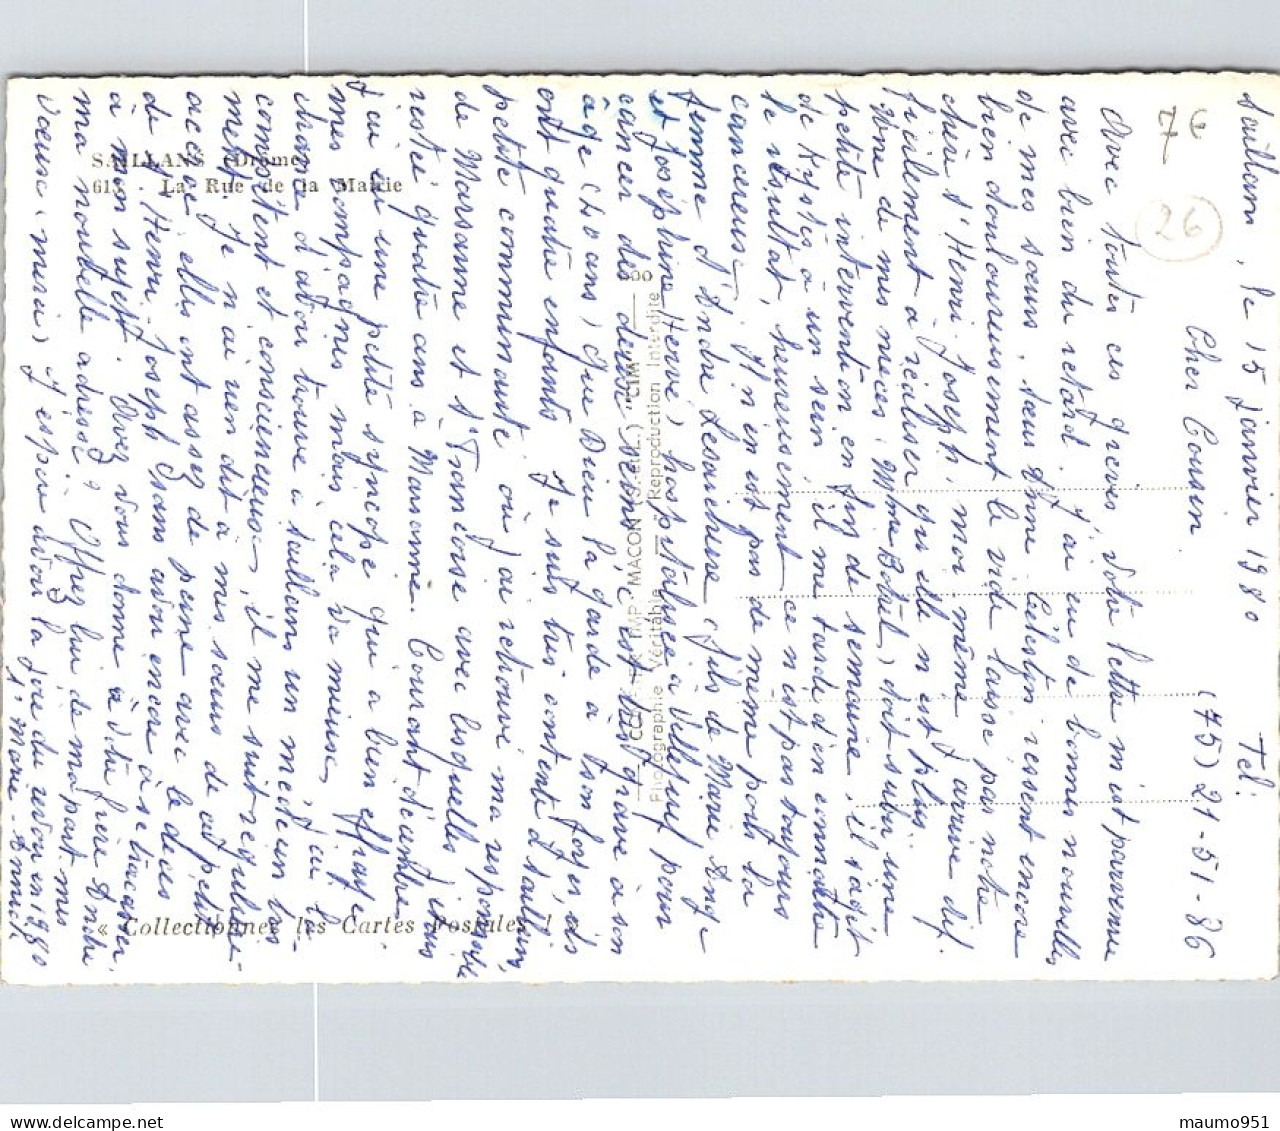 Saillans, le 15 Janvier 1980 Tel:
(75) 21-51-86
Cher Cousin.
Avec toutes ces grèves, votre lettre m'est parvenue
avec bien du retard. J'ai eu de bonnes nouvelles
de mes sœurs. Sœur Anne Célestin ressent encore
bien douloureusement le vide laissé par notre
chère d'Henri Joseph, moi même j'arrive dif-
ficilement à réaliser qu'elle n'est plus.
Une de mes nièces, Mme Botrel, doit subir une
petite intervention en fin de semaine, il s'agit
de kystes à un sein il me tarde d'en connaître
le résultat, heureusement ce n'est pas toujours
cancéreux. Il n'en est pas de même pour la
femme d'André (fils de Marie Ange
et Joséphine Hervé) hospitalisée à Villejuif pour
cancer des deux seins, c'est très grave à son
âge (40 ans) que Dieu la garde à son foyer, ils
ont quatre enfants. Je suis très contente d'être à Saillans,
petite communauté où j'ai retrouvé ma responsable
de Marsanne et Sr Françoise avec lesquelles j'étais
restée quatre ans à Marsanne. Courant décembre
j'ai eu une petite syncope qui a bien effrayé
mes compagnes mais cela va mieux, j'ai la
chance d'avoir trouvé à Saillans un médecin très
compétent et consciencieux, il me suit régulière-
ment. Je n'ai rien dit à mes sœurs de ce petit
accroc, elles ont assez de peine avec le décès
de d'Henri Joseph sans avoir encore à se tracasser
à mon sujet. Avez vous donné à votre frère André
ma nouvelle adresse? Offrez lui de ma part mes
vœux (merci) j'espère avoir la joie du revoir en 1980
Sr Marie-Annick
SAILLANS (Drôme)
613 - La Rue de la Mairie
« Collectionnez les Cartes Postales ! »
IMP. MACON (S.-et-L.) "CIM"
Photographie Véritable — Reproduction Interdite
7€
26
www.delcampe.net
maumo951